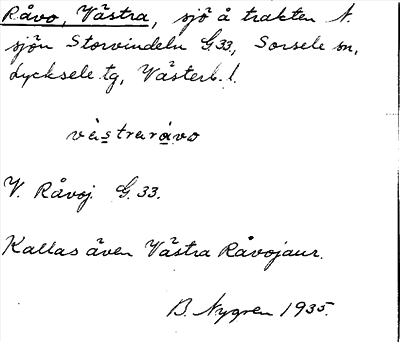 Råvo, Västra, sjö å trakten N.
sjön Storvindeln G 33, Sorsele sn,
Lycksele tg, Västerb. l.
västrarávo
V. Råvoj. G. 33.
Kallas även Västra Råvojaur.
B. Nygren 1935.